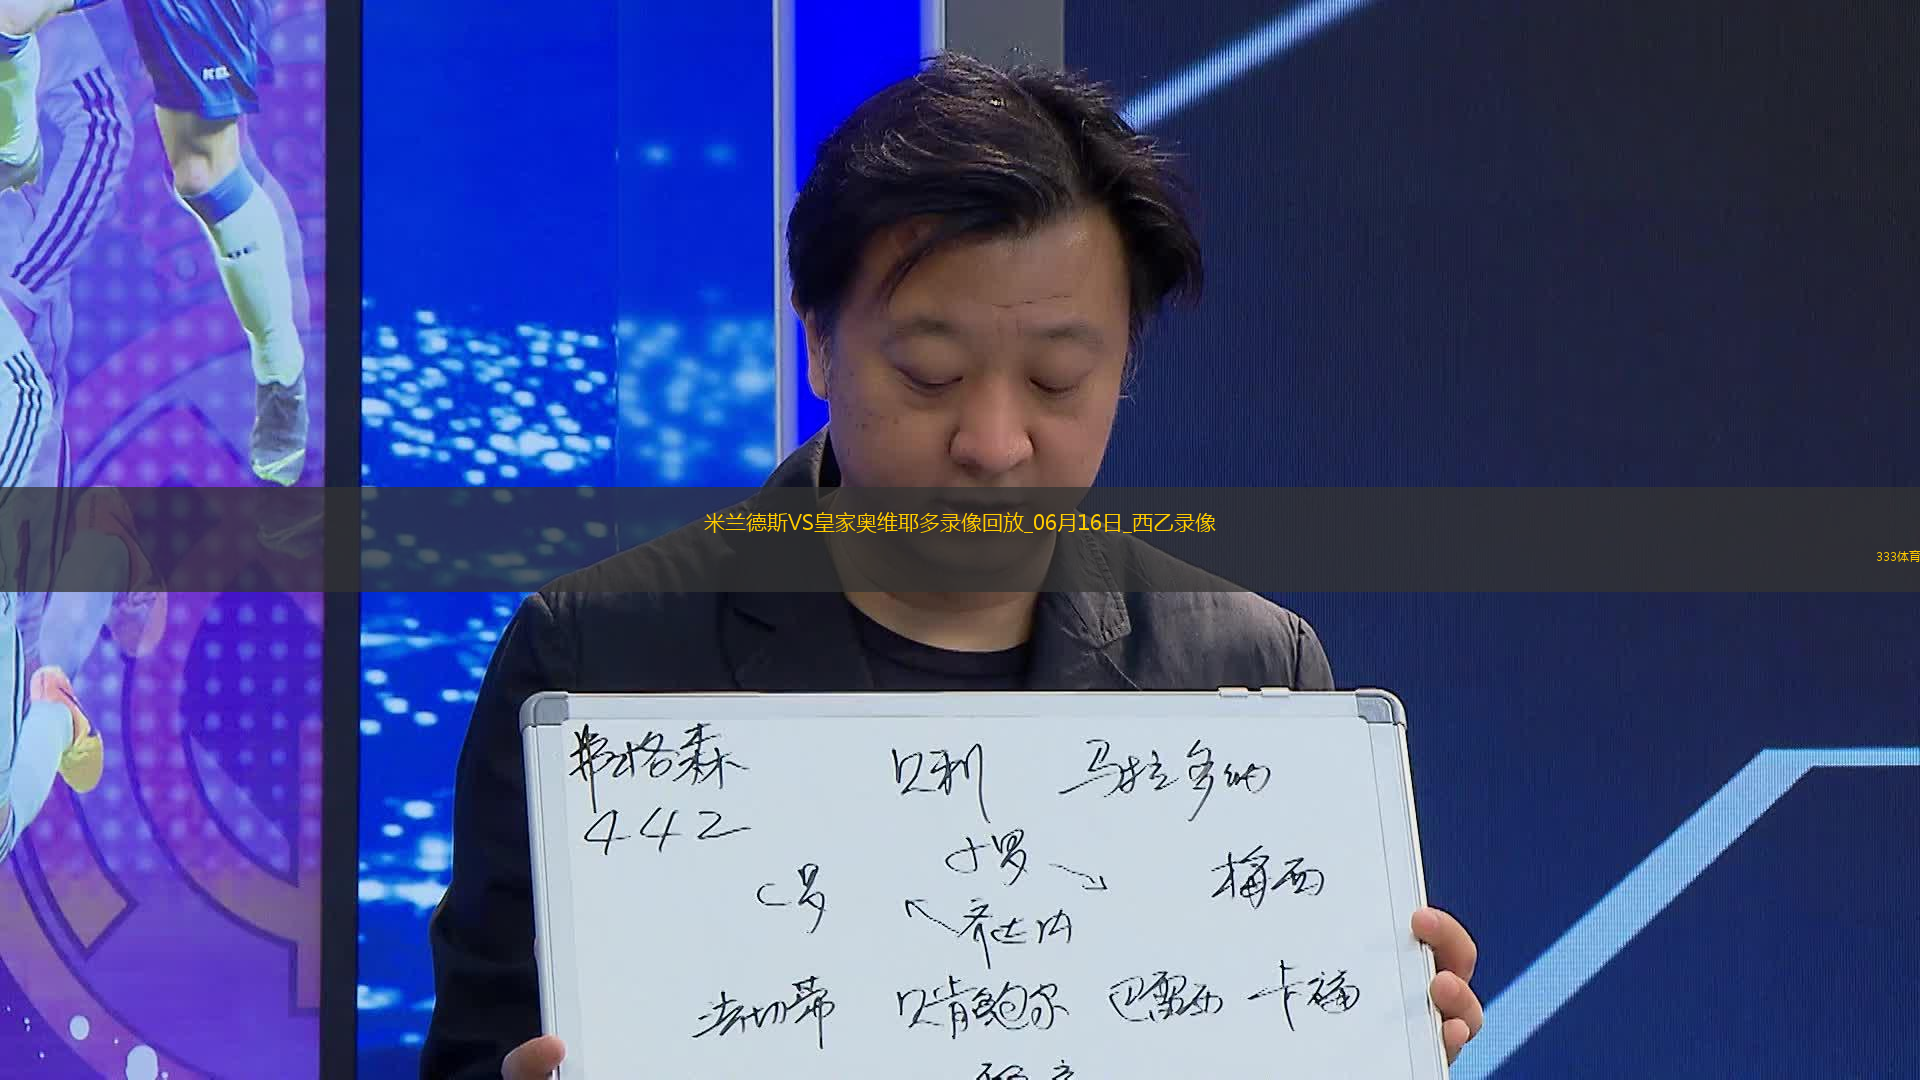 米兰德斯VS皇家奥维耶多录像回放_06月16日_西乙录像
333体育
弗格森 贝利 马拉多纳
442
小罗
C罗 梅西
齐达内
法切蒂 贝肯鲍尔 巴雷西 卡福